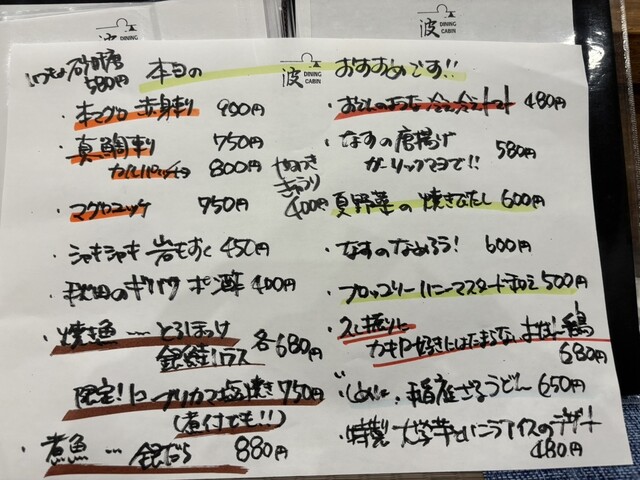 波 DINING CABIN
波 DINING CABIN
砂肝 580円
本日の 波 DINING CABIN おすすめです!!
・本マグロ 赤身刺 900円
・真鯛刺 750円
カルパッチョ 800円
やみつききゅうり 400円
・マグロユッケ 750円
・シャキシャキ 岩もずく 450円
・秋田のギバサ ポン酢 400円
・焼き魚 … とろほっけ
銀鮭ハラス 各680円
限定!! ブリカマ塩焼き 750円
(煮付でも!!)
・煮魚 … 銀だら 880円
・おでんのおつな 冷冷トマト 480円
・なすの唐揚げ
ガーリックマヨで!! 580円
・夏野菜の焼きびたし 600円
・なすのなめろう! 600円
・ブロッコリーハニーマスタード和え 500円
・久し振りに
カキP好きにはたまらない 鶏
680円
・〆に、稲庭ざるうどん 650円
・特製 大学芋とバニラアイスのデザート
480円